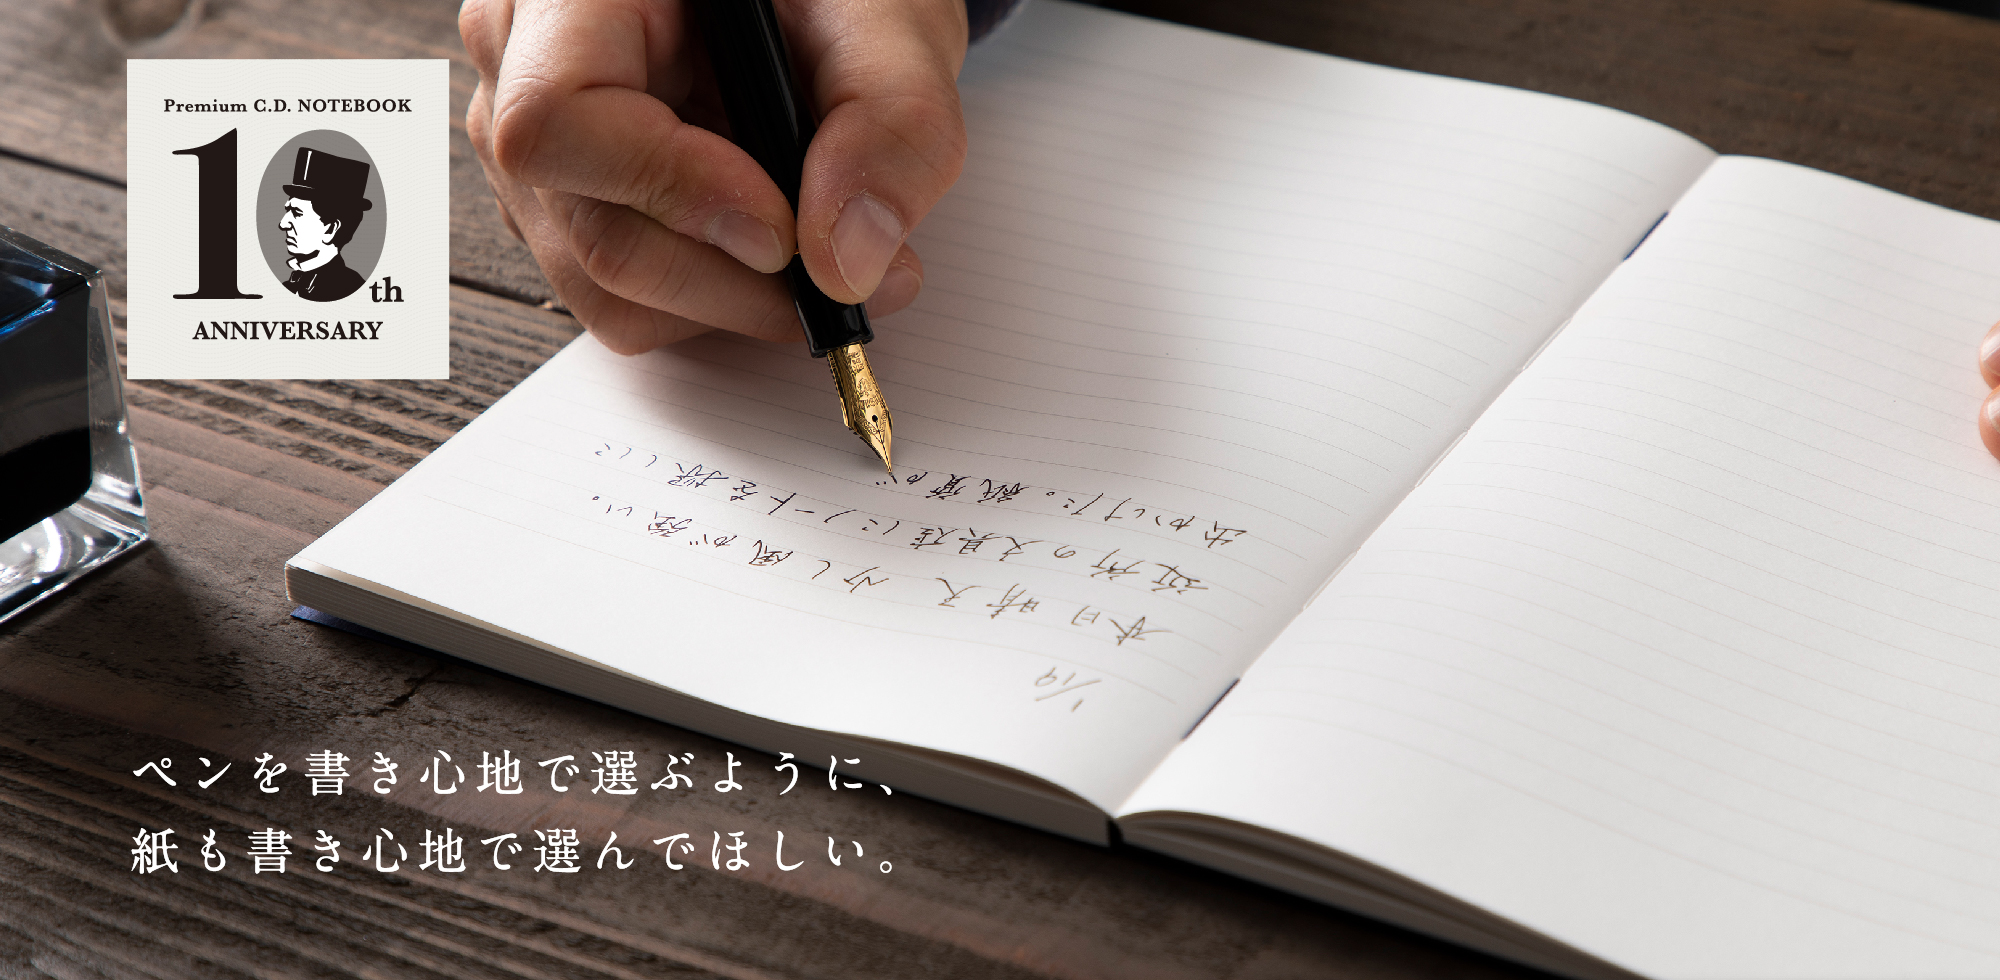 Premium C.D. NOTEBOOK
10th
ANNIVERSARY
1/19
本日晴天 少し風が強い。
近所の文具店にノートを探しに
出かけた。紙質が
ペンを書き心地で選ぶように、
紙も書き心地で選んでほしい。